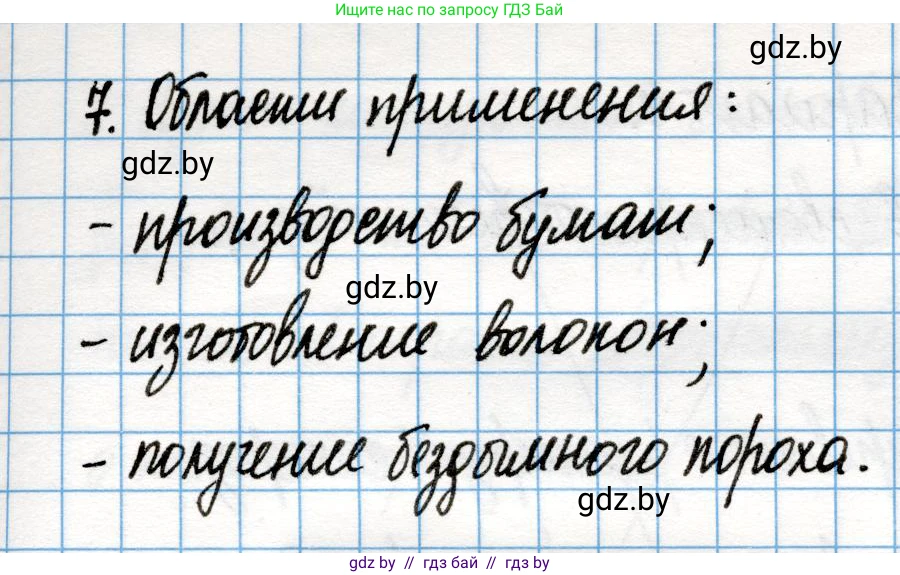 Ищите нас по запросу ГДЗ Бай
gdz.by
7. Области применения:
gdz.by
- производство бумаги;
gdz.by
- изготовление волокон;
- получение бездымного пороха.
gdz.by
gdz.by // гдз бай // gdz.by